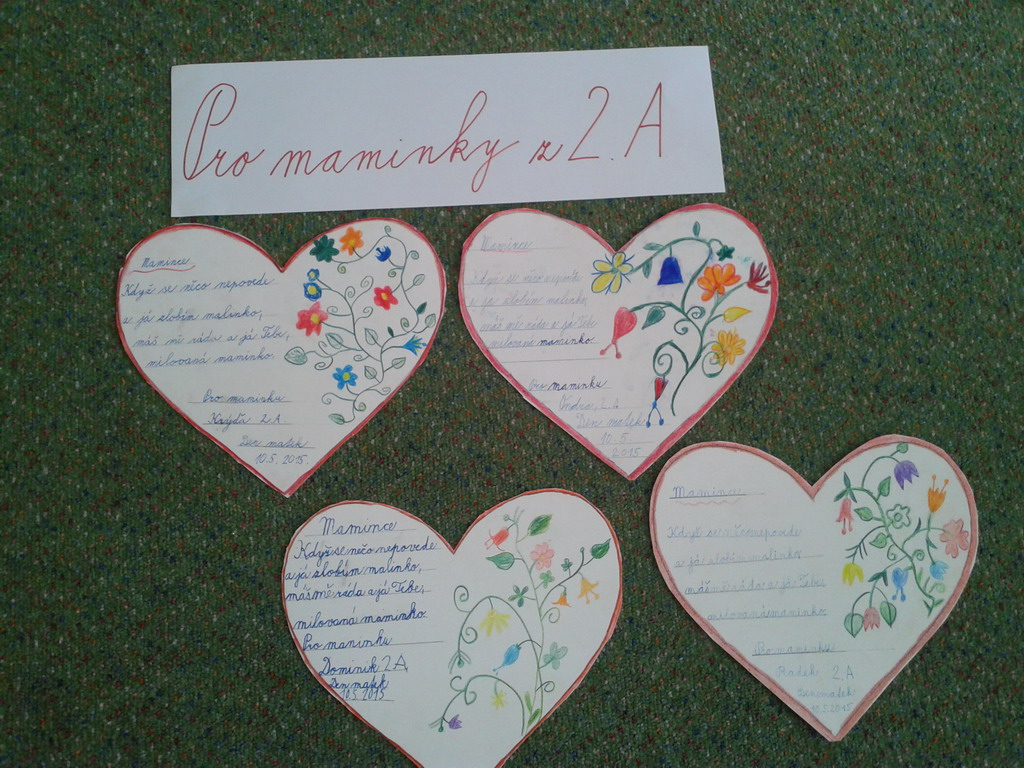 Pro maminky z 2.A
Mamince
Když se něco nepovede
a já zlobím malinko,
máš mě ráda a já Tebe,
milovaná maminko.
Pro maminku
2.A.
Den matek
10.5.2015.
Mamince
Když se něco nepovede
a já zlobím malinko,
máš mě ráda a já Tebe
milovaná maminko.
Pro maminku
Ondra, 2.A
Den matek
10.5.
2015
Mamince
Když se nečo nepovede
a já zlobým malinko,
máš mě ráda a já Tebe,
milovaná maminko.
Pro maninku
Dominik 2.A,
Den matek
10.5.2015
Mamince
Když se něco nepovede
a já zlobím malinko
máš mě ráda a já Tebe
milovaná maminko.
Pro maminku
Radek 2.A
Den matek
10.5.2015